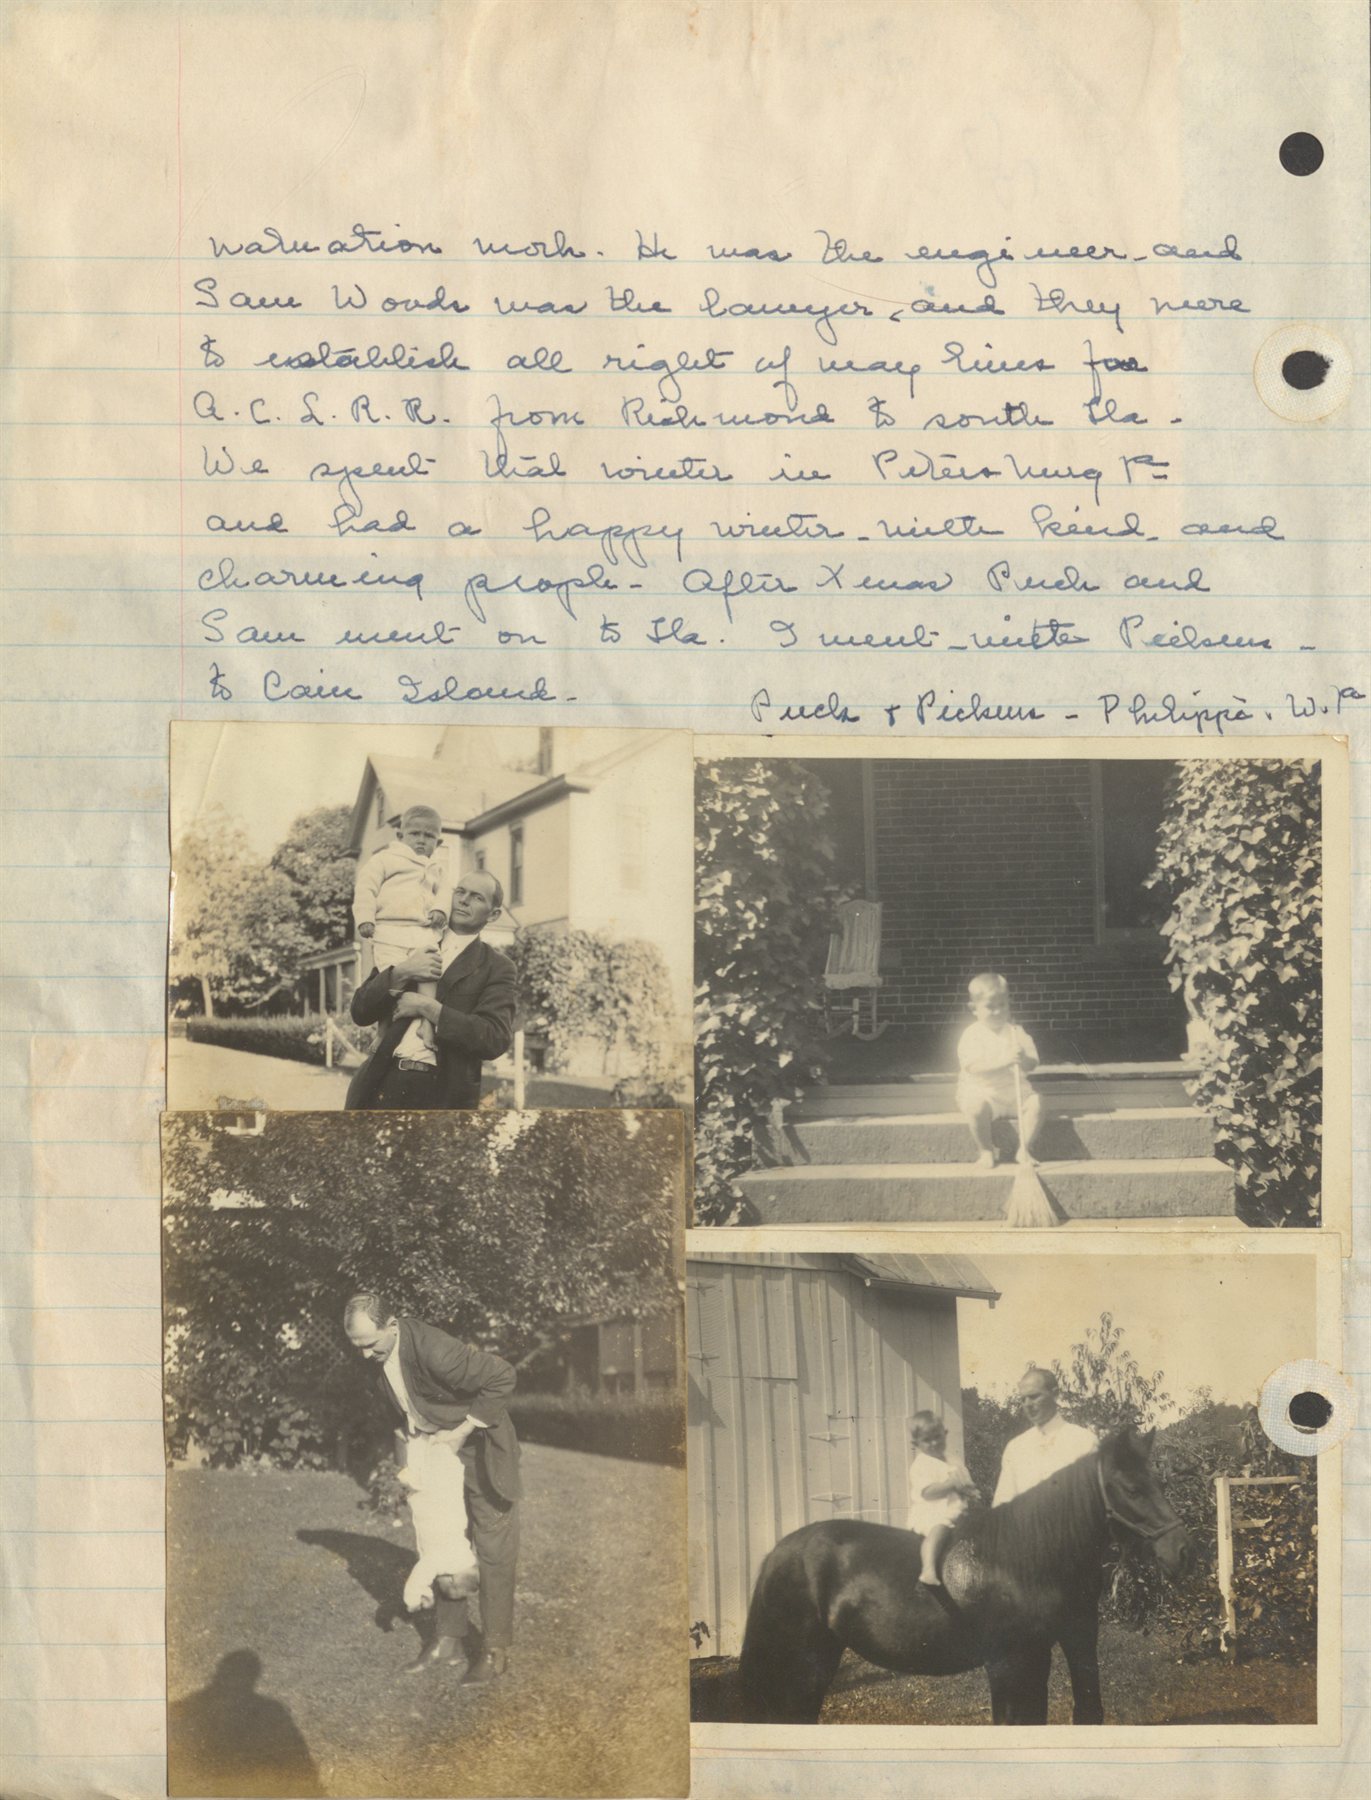 valuation work. He was the engineer and
Sam Woods was the lawyer, and they were
to establish all right of way lines for
A. C. L. R. R. from Richmond to south Fla -
We spent that winter in Petersburg Va
and had a happy winter - with kind and
charming people - After Xmas Puck and
Sam went on to Fla. I went with Pickens -
to Cain Island -
Puck & Pickens - Philippi, W. Va